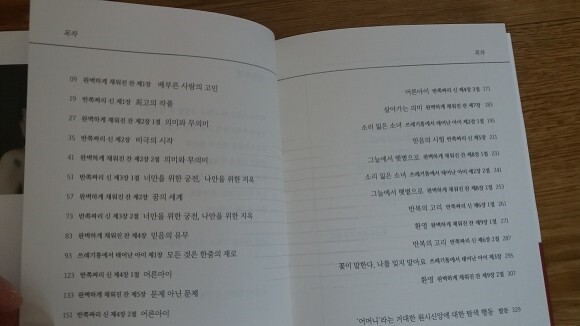 목차
09 완벽하게 채워진 잔 제1장 배부른 사람의 고민
19 반쪽짜리 신 제1장 최고의 작품
27 완벽하게 채워진 잔 제2장 1절 의미와 무의미
35 반쪽짜리 신 제2장 비극의 시작
41 완벽하게 채워진 잔 제2장 2절 의미와 무의미
51 반쪽짜리 신 제3장 1절 너만을 위한 궁전, 나만을 위한 지옥
57 완벽하게 채워진 잔 제3장 꿈의 세계
73 반쪽짜리 신 제3장 2절 너만을 위한 궁전, 나만을 위한 지옥
83 완벽하게 채워진 잔 제4장 믿음의 유무
93 쓰레기통에서 태어난 아이 제1장 모든 것은 한줌의 재로
123 반쪽짜리 신 제4장 1절 어른아이
133 완벽하게 채워진 잔 제5장 문제 아닌 문제
151 반쪽짜리 신 제4장 2절 어른아이
목차
어른아이 반쪽짜리 신 제4장 3절 171
살아가는 의미 완벽하게 채워진 잔 제7장 185
소리 잃은 소녀 쓰레기통에서 태어난 아이 제2장 1절 195
믿음의 시험 반쪽짜리 신 제5장 211
그늘에서 햇볕으로 완벽하게 채워진 잔 제8장 1절 231
소리 잃은 소녀 쓰레기통에서 태어난 아이 제2장 2절 241
그늘에서 햇볕으로 완벽하게 채워진 잔 제8장 2절 251
반복의 고리 반쪽짜리 신 제6장 1절 261
환영 완벽하게 채워진 잔 제9장 1절 271
반복의 고리 반쪽짜리 신 제6장 2절 287
꽃이 말한다, 나를 잊지 말아요 쓰레기통에서 태어난 아이 제3장 295
환영 완벽하게 채워진 잔 제9장 2절 307
'어머니'라는 거대한 원시신앙에 대한 탐색 행동 발문 329